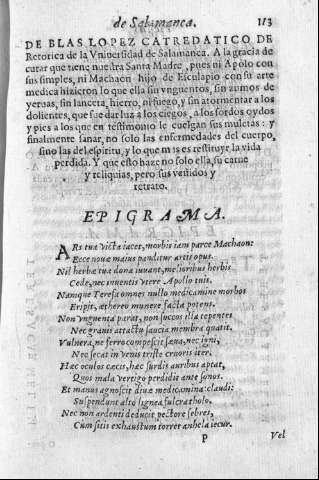 de Salamanca. 113
DE BLAS LOPEZ CATREDATICO DE
Retorica de la Vniuersidad de Salamanca. A la gracia de
curar que tiene nuestra Santa Madre, pues ni Apolo con
sus simples, ni Machaon hijo de Esculapio con su arte
medica hizieron lo que ella sin vnguentos, sin zumos de
yeruas, sin lanceta, hierro, ni fuego, y sin atormentar a los
dolientes, que fue dar luz a los ciegos, a los sordos oydos
y pies a los que en testimonio le cuelgan sus muletas: y
finalmente sanar, no solo las enfermedades del cuerpo,
sino las del espiritu, y lo que mas es restituyr la vida
perdida. Y que esto haze no solo ella, su carne
y reliquias, pero sus vestidos y
retrato.
EPIGRAMA.
ARs tuæ victa iacet, morbis iam parce Machaon:
Ecce nouæ maius panditur artis opus.
Nil herbæ tuæ dona iuuant, melioribus herbis
Cede, nec inuentis vtere Apollo tuis.
Namque Teresa omnes nullo medicamine morbos
Eripit, æthereo munere facta potens.
Non vnguenta parat, non succos illa tepentes
Nec grauis attactu saucia membra quatit.
Vulnera, nec ferro compescit sæua, nec igni,
Nec secat in venis triste cruoris iter.
Hæc oculos cæcis, hæc surdis auribus aptat,
Quos mala vertigo perdidit ante sonos.
Et manus agnoscit diuæ medicamina: claudi:
Suspendunt alto lignea fulcra tholo.
Nec non ardenti deducit pectore febres,
Cum sitis exhaustum torret anhela iecur.
P Vel